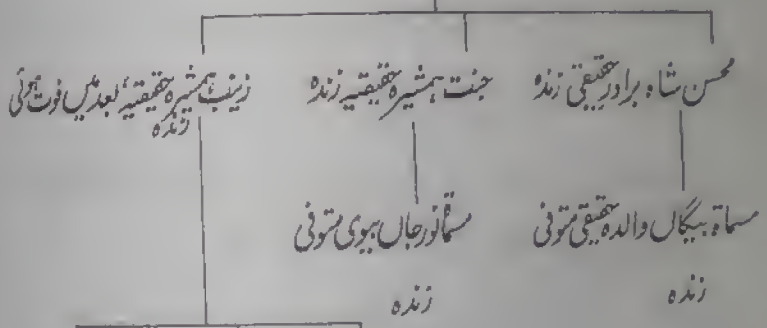 محسن شاہ برادر حقیقی زندہ
جنت ہمشیرہ حقیقیہ زندہ
زینب ہمشیرہ حقیقیہ، بعد میں فوت ہوئی
زندہ
مسماۃ بیگاں والدہ حقیقی متوفی
زندہ
مسماۃ نور جاں بیوی متوفی
زندہ